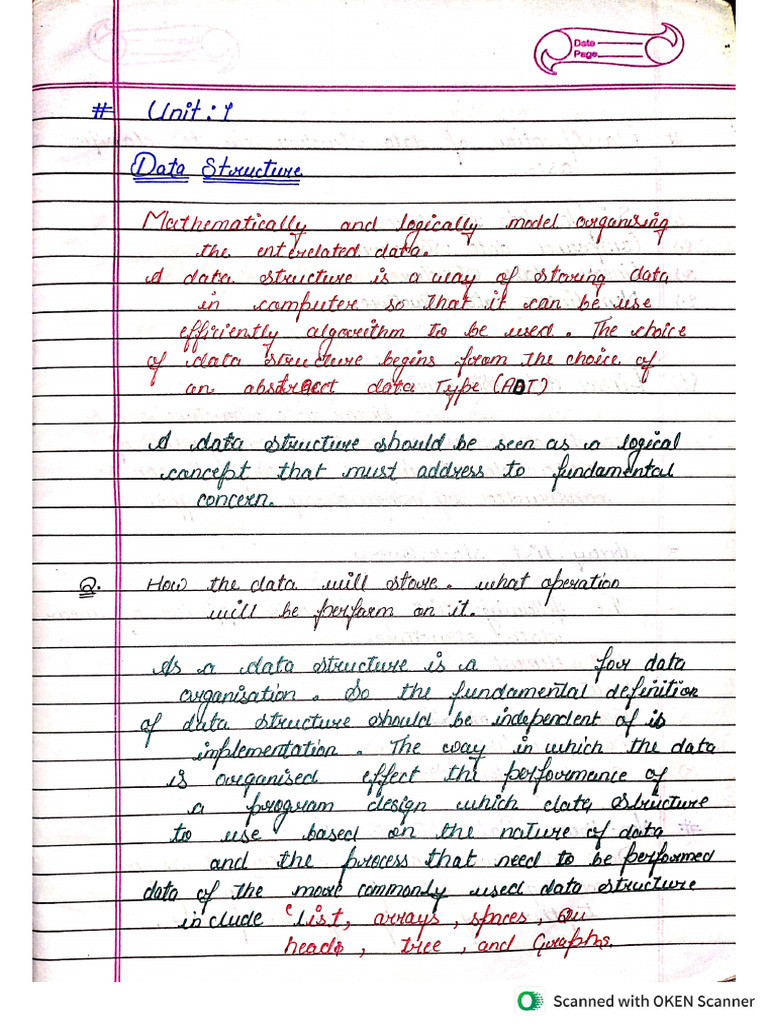 Date
Page
# Unit: 1
Data Structure
Mathematically and logically model organising
the enterelated data.
A data structure is a way of storing data
in computer so that it can be use
effiriently algorithm to be used. The choice
of data structure begins from the choice of
an abstract data Type (ADT)
A data structure should be seen as a logical
concept that must address to fundamental
concern.
Q. How the data will store. what operation
will be perform on it.
As a data structure is a for data
organisation. So the fundamental definition
of data structure should be independent of is
implementation. The way in which the data
is organised effect the performance of
a program design which data structure
to use based on the nature of data
and the process that need to be performed
data of the more commonly used data structure
include list, arrays, spaces,
heads, tree, and Graphs.
Scanned with OKEN Scanner